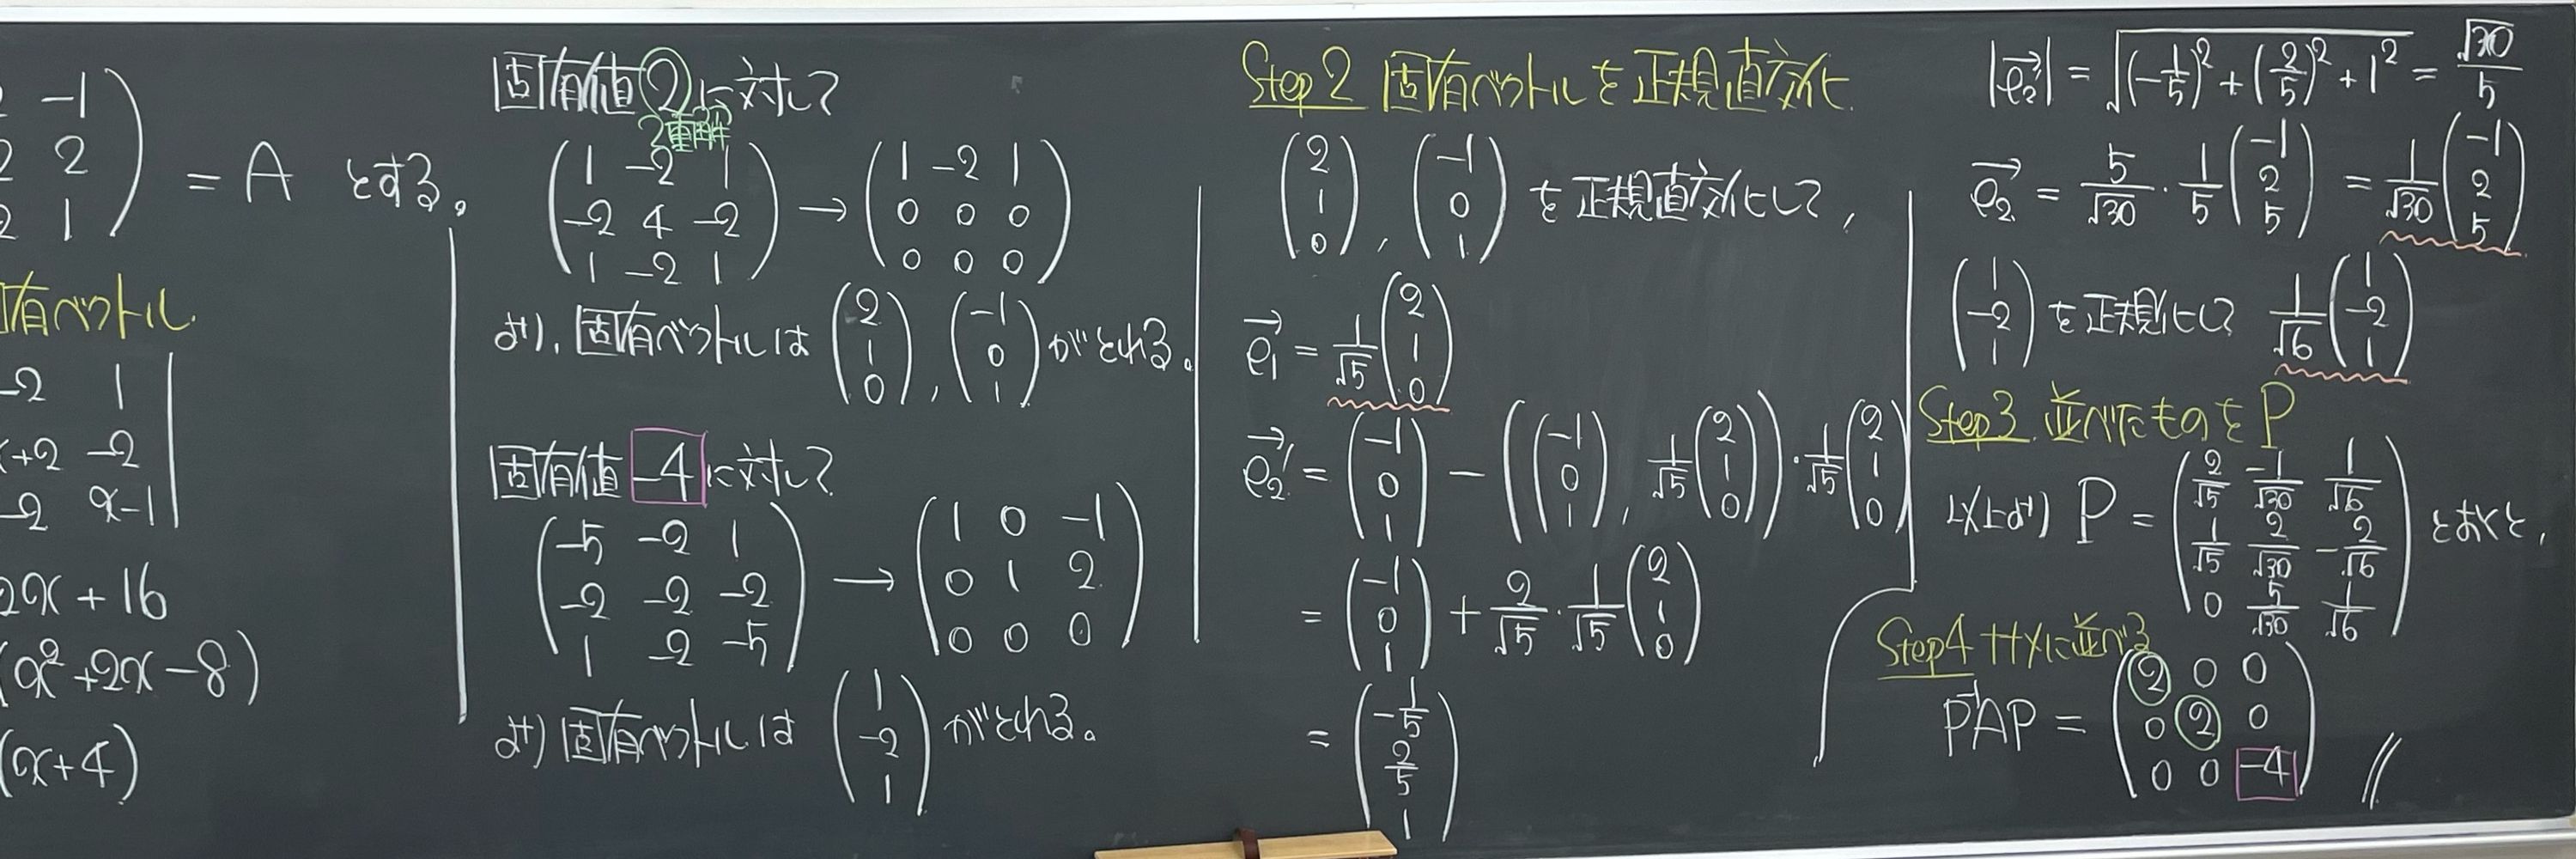 2 -1
2 2
2 1
= A とする。
有ベクトル
-2 1
x+2 -2
-2 x-1
2x + 16
(x² + 2x - 8)
(x+4)
固有値 2 に対して
2重解
( 1 -2 1 ) → ( 1 -2 1 )
( -2 4 -2 ) ( 0 0 0 )
( 1 -2 1 ) ( 0 0 0 )
より、固有ベクトルは (2 1 0), (-1 0 1) がとれる。
固有値 -4 に対して
( -5 -2 1 ) → ( 1 0 -1 )
( -2 -2 -2 ) ( 0 1 2 )
( 1 -2 -5 ) ( 0 0 0 )
より 固有ベクトルは (1 -2 1) がとれる。
Step2 固有ベクトルを正規直交化
(2 1 0), (-1 0 1) を正規直交化して,
e₁ = 1/√5 (2 1 0)
e₂' = (-1 0 1) - ((-1 0 1), 1/√5 (2 1 0)) · 1/√5 (2 1 0)
= (-1 0 1) + 2/√5 · 1/√5 (2 1 0)
= (-1/5 2/5 1)
|e₂'| = √((-1/5)² + (2/5)² + 1²) = √30/5
e₂ = 5/√30 · 1/5 (-1 2 5) = 1/√30 (-1 2 5)
(1 -2 1) を正規化して 1/√6 (1 -2 1)
Step3 並べたものをP
以上より P = ( 2/√5 -1/√30 1/√6 ) とおくと,
( 1/√5 2/√30 -2/√6 )
( 0 5/√30 1/√6 )
Step4 ナナメに並べる
P⁻¹AP = ( 2 0 0 )
( 0 2 0 )
( 0 0 -4 ) //